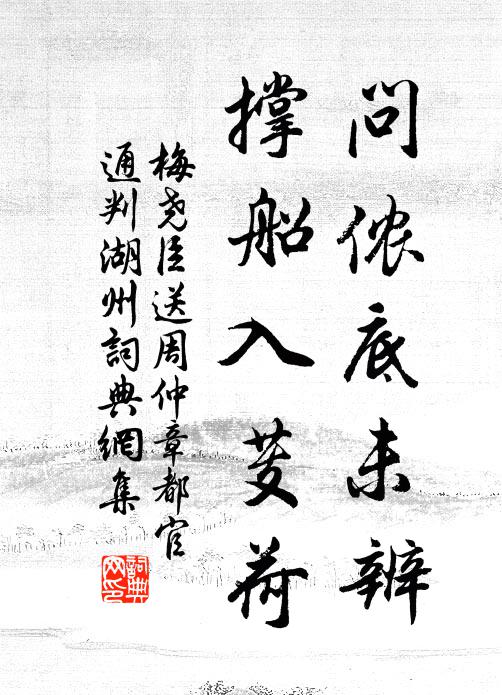 问侬底未辨
撑船入芰荷
梅尧臣送周仲章都官
通判湖州詞典網集
詞典网印